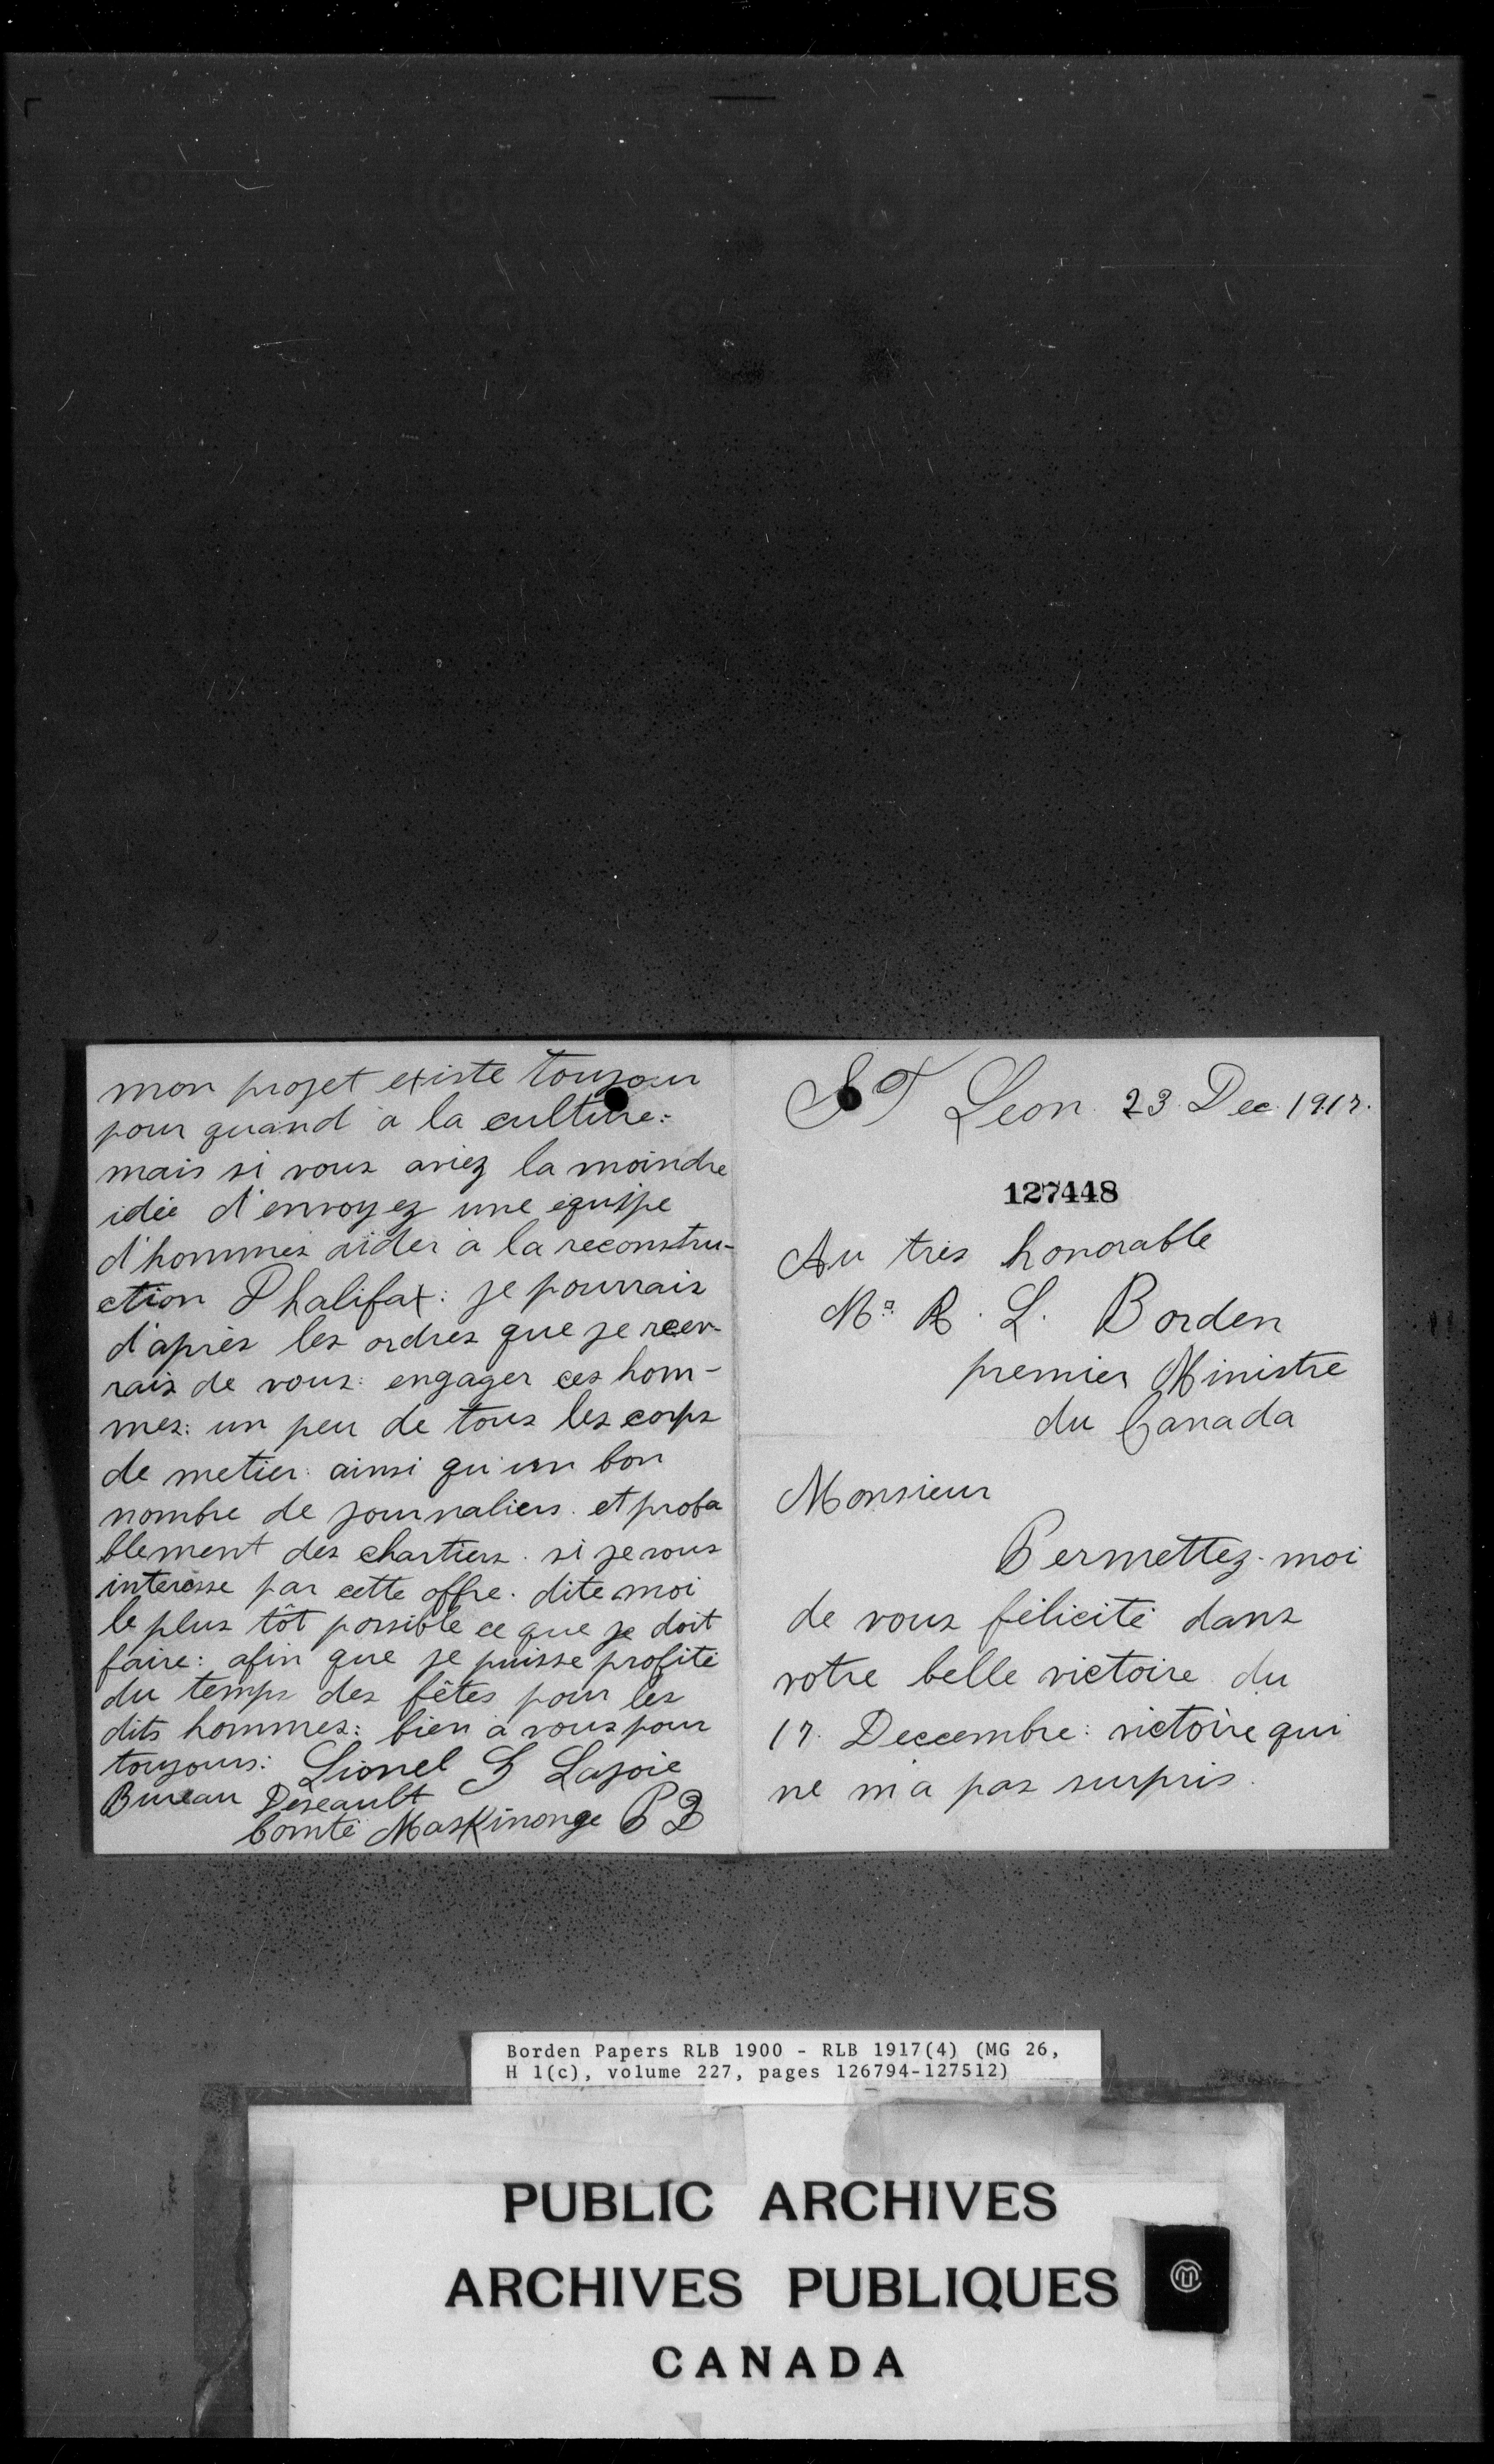 ST Leon 23 Dec. 1917.
127448
Au très honorable
Mr R. L. Borden
premier Ministre
du Canada
Monsieur
Permettez-moi
de vous félicité dans
votre belle victoire du
17. Deccembre: victoire qui
ne m'a pas surpris.
mon projet existe toujour
pour quand à la culture:
mais si vous aviez la moindre
idée d'envoyez une équipe
d'hommes aider à la reconstru-
ction Dhalifax: je pourrais
d'après les ordres que je recev-
rais de vous: engager ces hom-
mes: un peu de tous les corps
de metier: ainsi qu'un bon
nombre de journaliers. et proba
blement des chartiers. si je vous
interesse par cette offre. dite moi
le plus tôt possible ce que je doit
faire: afin que je puisse profité
du temps des fêtes pour les
dits hommes: bien à vous pour
toujours: Lionel G Lajoie
Bureau Deseault
Comté Maskinonge P Q
Borden Papers RLB 1900 - RLB 1917(4) (MG 26,
H 1(c), volume 227, pages 126794-127512)
PUBLIC ARCHIVES
ARCHIVES PUBLIQUES
CANADA